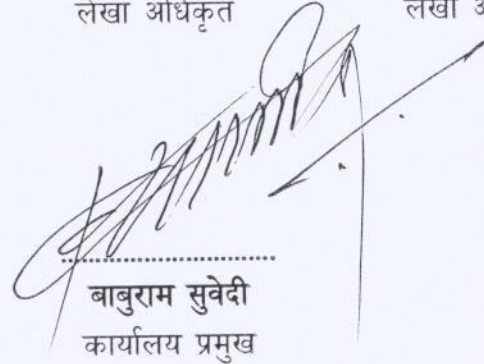 लेखा अधिकृत लेखा
बाबुराम सुवेदी
कार्यालय प्रमुख